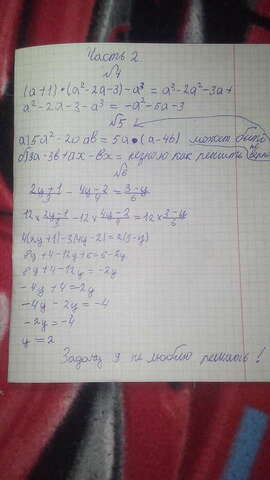 Часть 2
№4
(a+1)·(a²-2a-3)-a³ = a³-2a²-3a+
a²-2a-3-a³ = -a²-5a-3
№5
а) 5a²-20ab = 5a·(a-4b) может быть
б) 3a-3b+ax-bx = не знаю как решить
№6
2y+1/3 - 4y-2/4 = 3-y/6
12×2y+1/3 - 12×4y-2/4 = 12×3-y/6
4(2y+1)-3(4y-2)=2(3-y)
8y+4-12y+6=6-2y
8y+4-12y=-2y
-4y+4=-2y
-4y-2y=-4
-2y=-4
y=2
Задачу я не люблю решать!